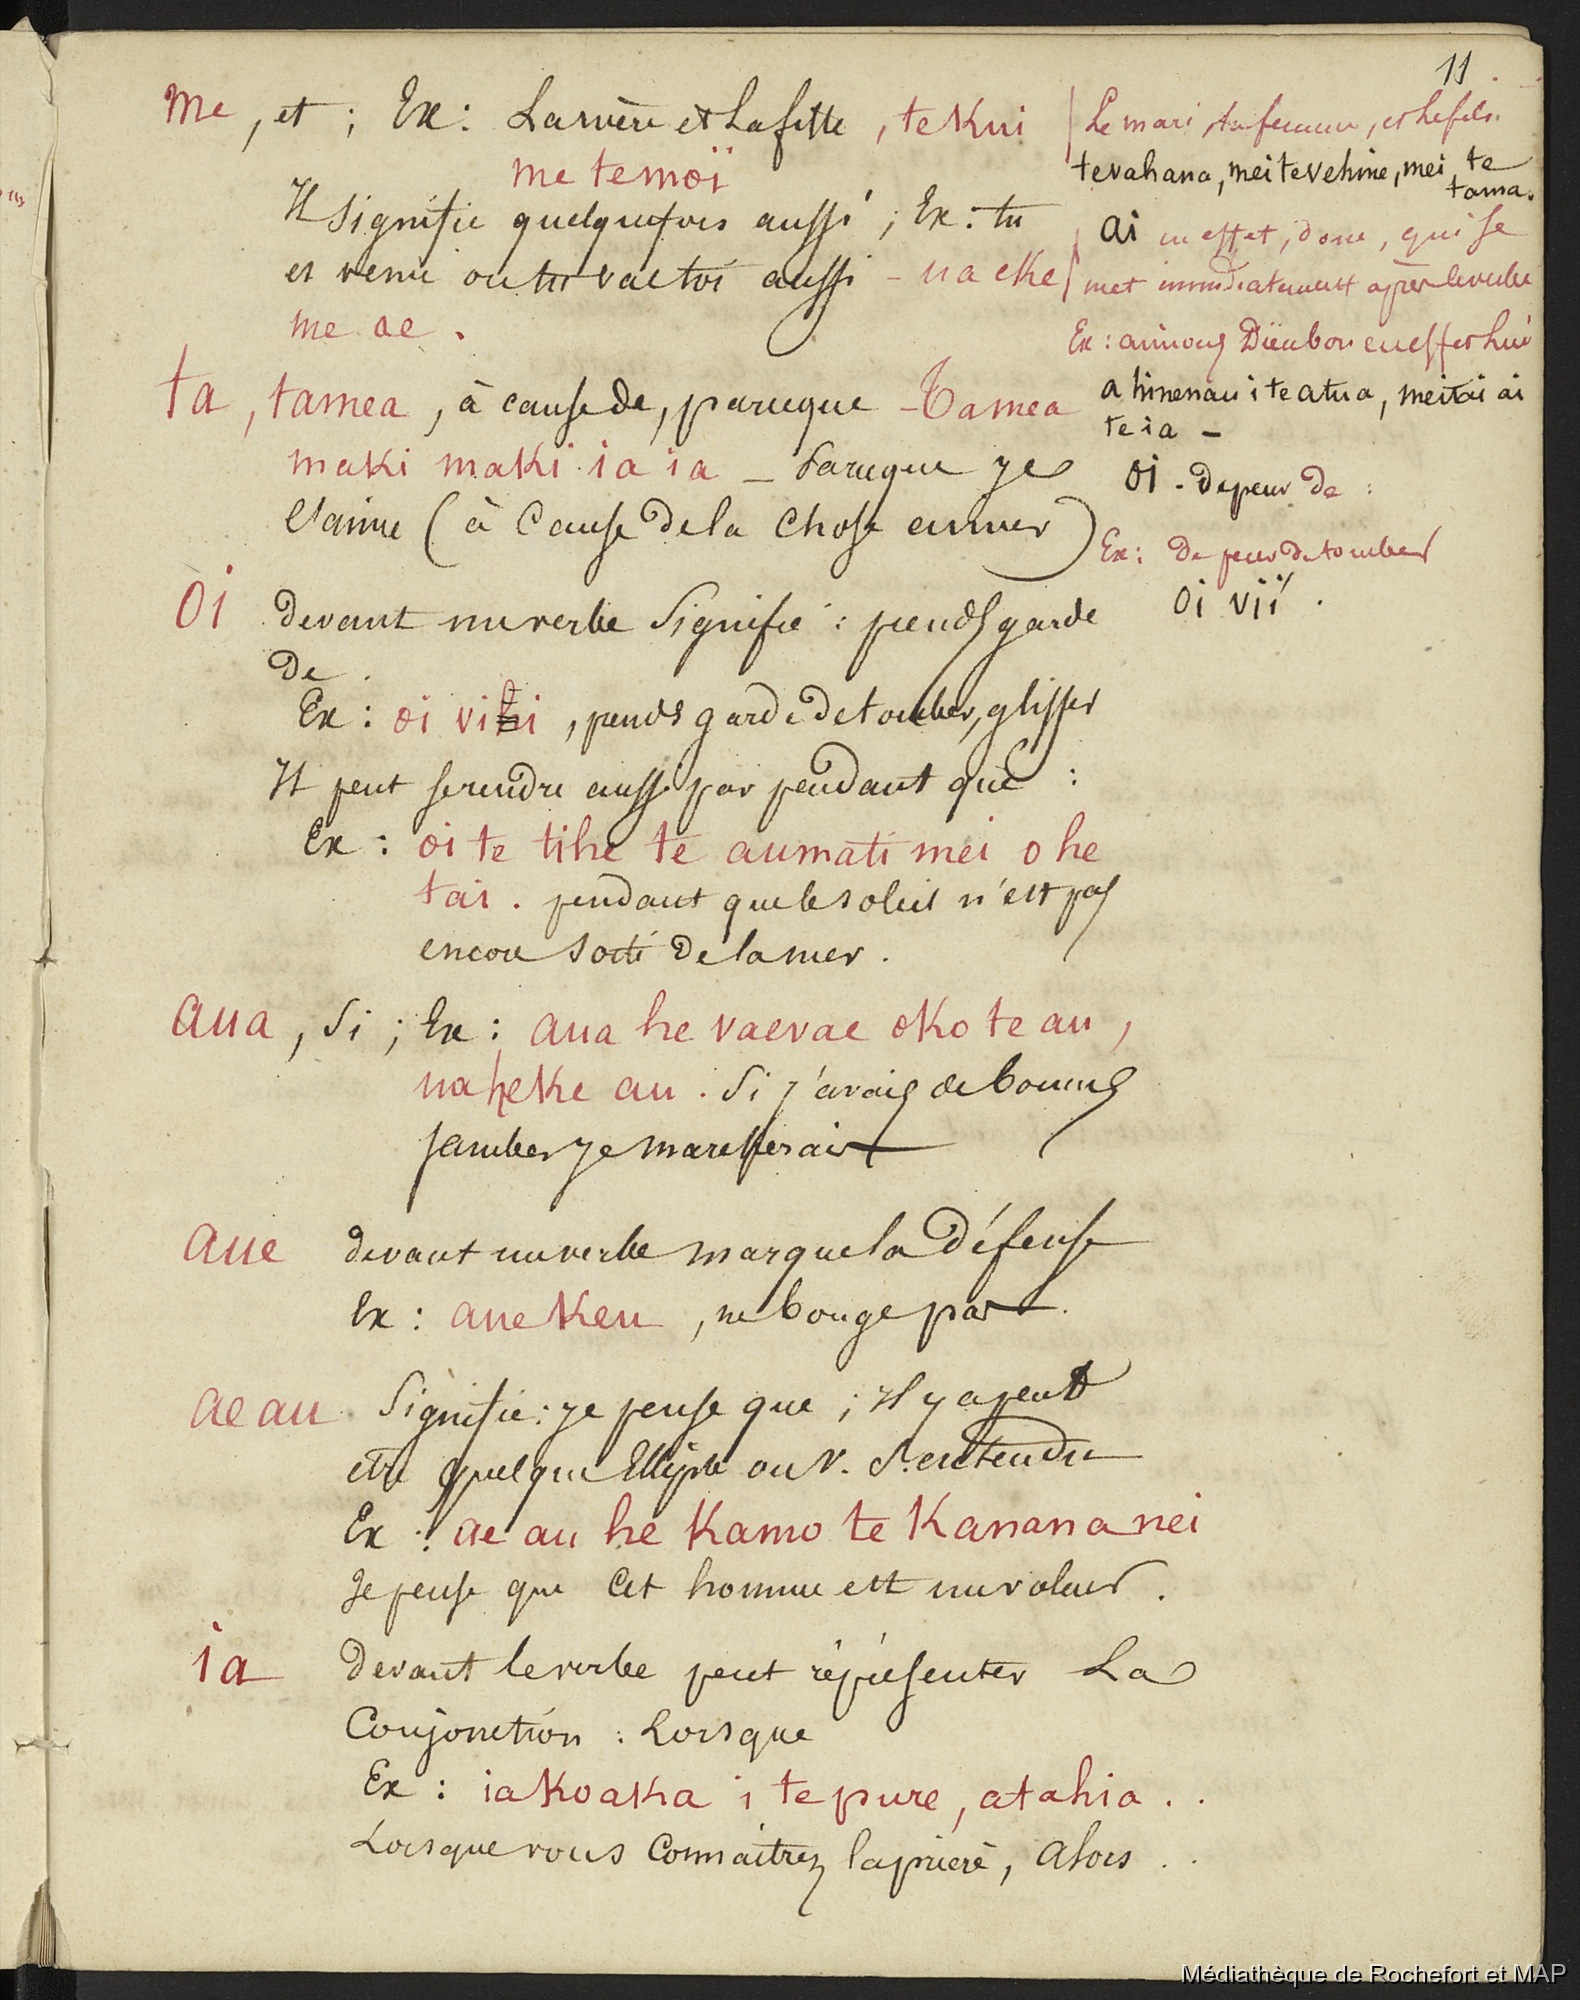 11
me, et ; Ex : La mère et la fille, te Kui
me te moï
Il signifie quelquefois aussi ; Ex : tu
es venu ou tu vas toi aussi - ua eke
me oe.
ta, tamea, à cause de, parceque - Tamea
maki maki ia ia _ Parceque je
l'aime (à Cause de la Chose aimer)
Oi devant un verbe Signifie : prends garde
de.
Ex : oi vihi, prends garde de tomber, glisser
Il peut se rendre aussi par pendant que :
Ex : oi te tihe te aumati mei o he
tai. pendant que le soleil n'est pas
encore sorti de la mer.
aua, Si ; Ex : aua he vaevae oko te au,
ua heke au. Si j'avais de bonnes
jambes je marcherais
aue devant un verbe marque la défense
Ex : aue Keu, ne bouge pas.
ae au Signifie : je pense que ; il y a peut
être quelque Ellipse ou v. s. entendu
Ex : ae au he Kamo te Kanana nei
Je pense que Cet homme est un voleur.
ia Devant le verbe peut réprésenter La
Conjonction : Lorsque
Ex : ia koaka i te pure, atahia . .
Lorsque vous Connaitrez la prière, Alors . .
Le mari, la femme, et le fils.
te vahana, mei te vehine, mei te
tama.
ai en effet, donc, qui se
met immédiatement après le verbe
Ex : aimons Dieu bon en effet lui
a hinenao i te atua, meitai ai
te ia -
oi - de peur de :
Ex : De peur de tomber
oi vii.
Médiathèque de Rochefort et MAP